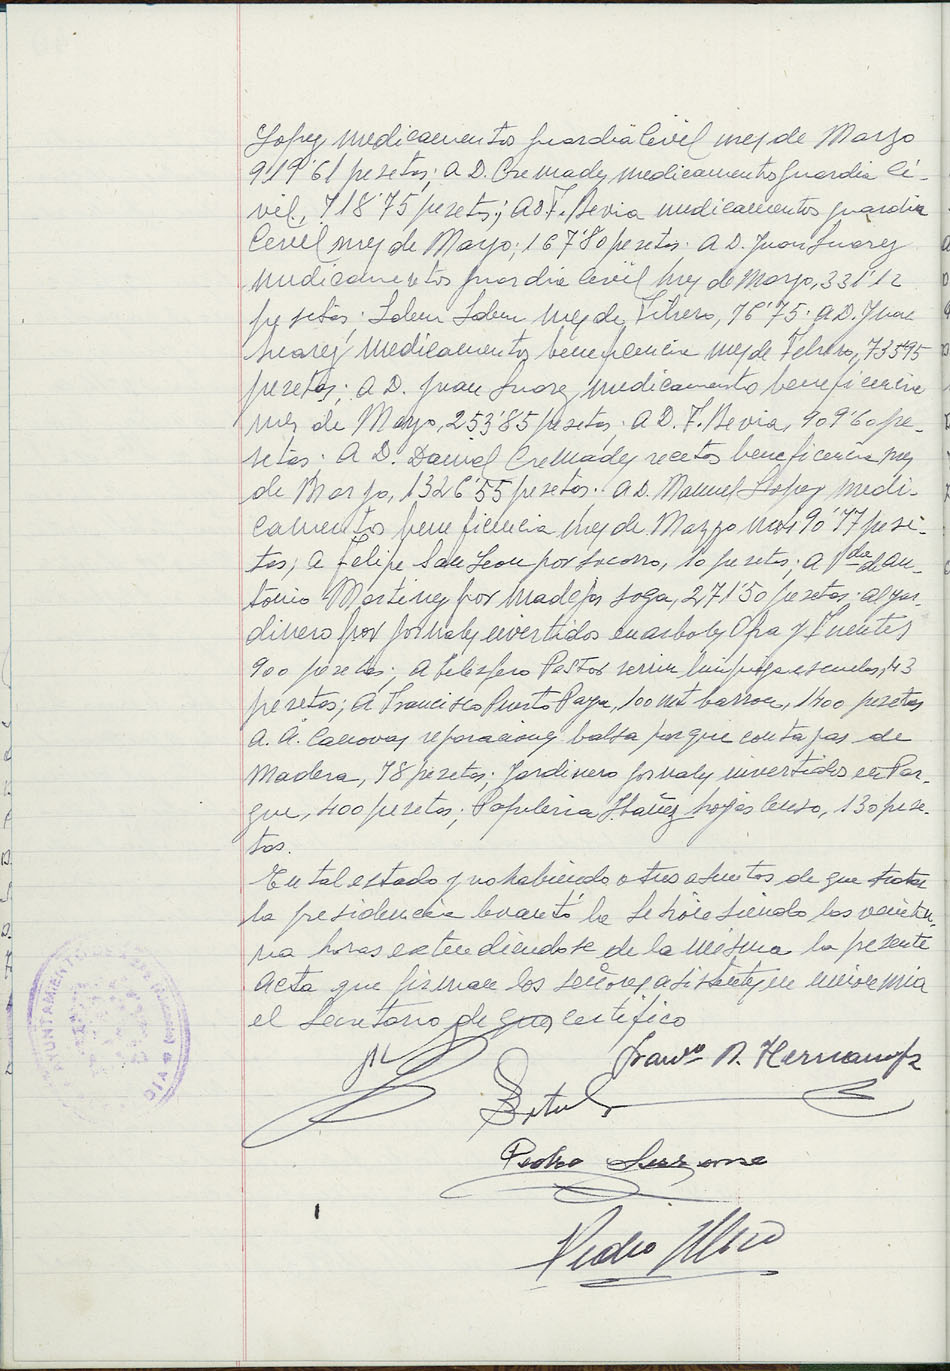 Lopez medicamentos guardia Civil mes de Marzo
919'61 pesetas; A D. Cremades medicamentos guardia Ci-
vil, 718'75 pesetas; A D F. Bevia medicamentos guardia
Civil mes de Marzo; 167'80 pesetas. A D. Juan Suarez
medicamentos guardia Civil mes de Marzo, 331'12
pesetas; Idem Idem mes de Febrero, 76'75. A D. Juan
Suarez medicamentos beneficencia mes de Febrero, 735'95
pesetas; A D. Juan Suarez medicamento beneficencia
mes de Marzo, 253'85 pesetas. A D. F. Bevia, 909'60 pe-
setas. A D. Daniel Cremades recetas beneficencia mes
de Marzo, 1326'55 pesetas. A D. Manuel Lopez medi-
camentos beneficencia mes de Marzo 90'77 pese-
tas; A Felipe San Leon por socorro, 10 pesetas; A Vda de An-
tonio Martinez por madejas soga, 271'50 pesetas. al jar-
dinero por jornales invertidos en arboles Ofra y Fuentes
900 pesetas; A Telesforo Pastor serrin limpieza escuelas, 43
pesetas; A Francisco Puerto Paya, 100 mt barron, 1400 pesetas
A. A. Canovas reparaciones balsa parque con tapas de
Madera, 78 pesetas; Jardinero jornales invertidos en Par-
que, 400 pesetas; Papeleria Ibañez hojas Censo, 130 pese-
tas.
En tal estado y no habiendo otros asuntos de que tratar
la presidencia levantó la sesion siendo las veintiu-
na horas extendiendose de la misma la presente
Acta que firman los señores asistentes en union mia
el Secretario de que certifico
Franco A. Hernandez
Pedro
Pedro
AYUNTAMIENTO DE